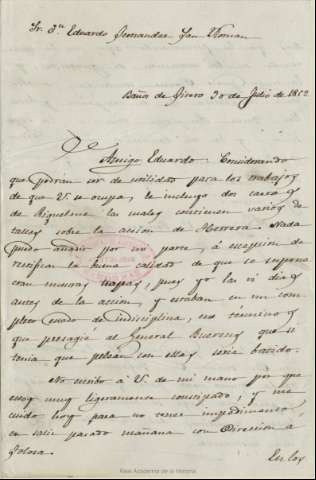 Sr. Dn Eduardo Fernandez San Roman
Baños de 30 de Julio de 1852
Amigo Eduardo: Considerando
que podran ser de utilidad para los trabajos
de que V. se ocupa, le incluyo dos cartas
de Riquelme las cuales contienen varios de-
talles sobre la accion de Herrera. Nada
puedo añadir por mi parte, á escepcion de
rectificar la buena calidad de que se supone
eran nuestras tropas, pues yo las vi dias
antes de la accion, y estaban en un com-
pleto estado de indisciplina, en terminos
que presagié al General Buerens que si
tenia que pelear con ellas seria batido.
No escribo á V. de mi mano por que
estoy muy ligeramente constipado, y me
cuido hoy para no tener impedimento
en salir pasado mañana con Direccion a
Tolosa.
En los
Real Academia de la Historia